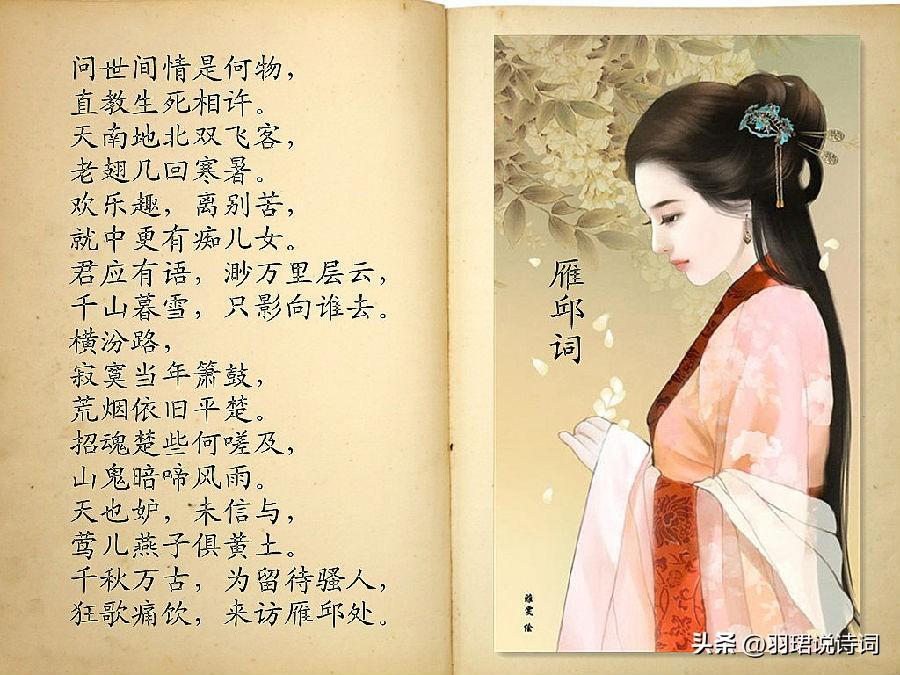 问世间情是何物，
直教生死相许。
天南地北双飞客，
老翅几回寒暑。
欢乐趣，离别苦，
就中更有痴儿女。
君应有语，渺万里层云，
千山暮雪，只影向谁去。
横汾路，
寂寞当年箫鼓，
荒烟依旧平楚。
招魂楚些何嗟及，
山鬼暗啼风雨。
天也妒，未信与，
莺儿燕子俱黄土。
千秋万古，为留待骚人，
狂歌痛饮，来访雁邱处。
雁邱词
绘
头条 @羽珺说诗词